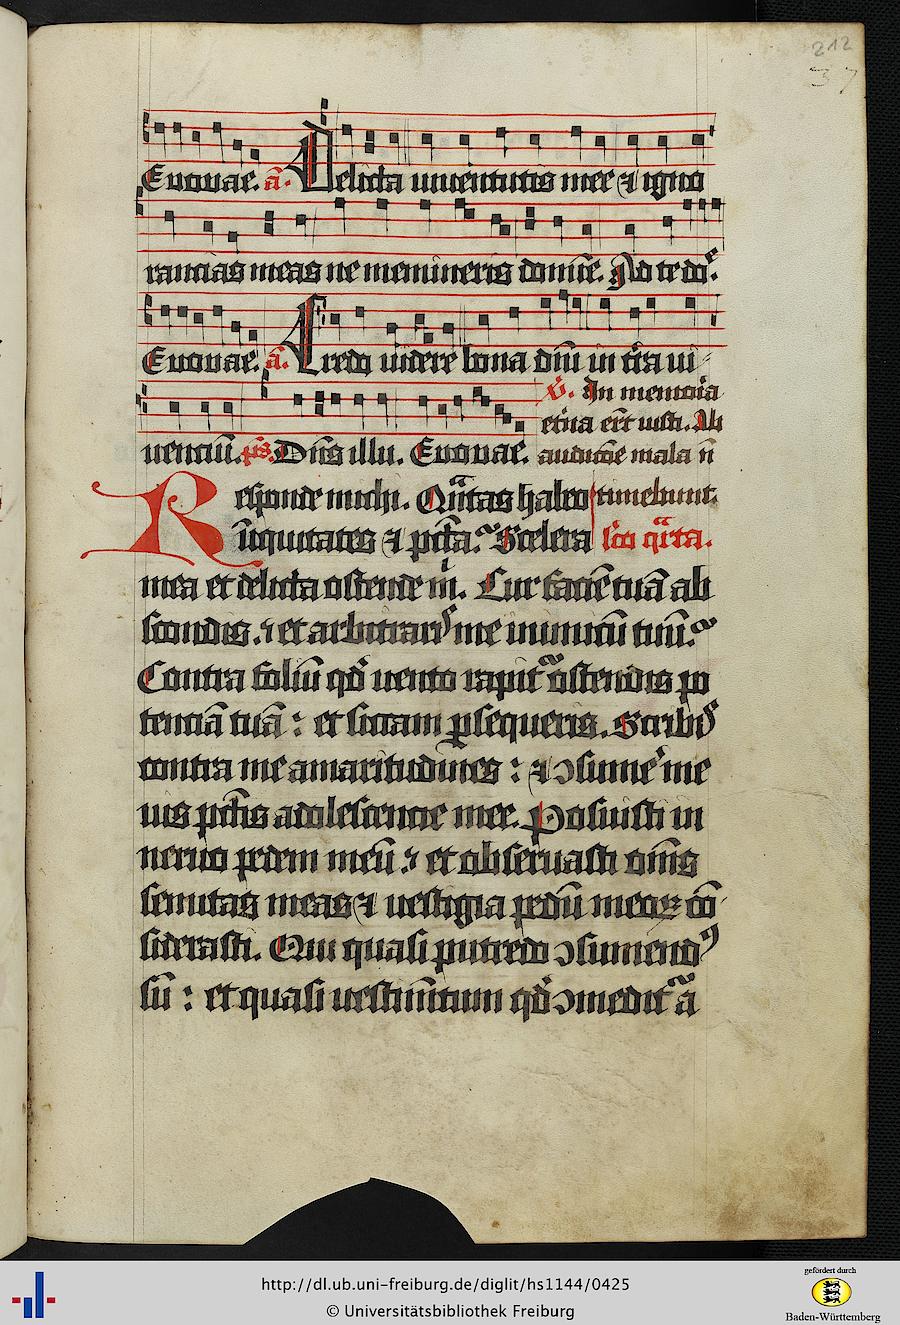 212
37
Euouae. ā. Delicta iuuentutis mee ⁊ igno
rancias meas ne memineris domine. Ad te do.
Euouae. ā. Credo uidere bona dn̄i in tr̄a ui
uenciū. ps. Dn̄s illu. Euouae.
v̄. In memoria
et̄na er̄t iusti. Ab
audicōe mala n̄
timebunt.
Responde michi. Qūtas habeo
lc̄o qͣrta.
iniquitates ⁊ pctā. Scelera
mea et delicta ostende m̄. Cur faciē tuā ab
scondis. et arbitraris me inimicū tuū.
Contra foliū qd̄ uento rapit̄ ostendis po
tenciā tuā : et siccam ꝑsequeris. Scribis
contra me amaritudines : ⁊ ↄsume᷑ me
uis pctīs adolescencie mee. Posuisti in
neruo pedem meū : et obseruasti om̄s
semitas meas ⁊ uestigia pedū meoꝝ cō
siderasti. Qui quasi putredo ↄsumendꝰ
sū : et quasi uestim̄tum qd̄ ↄmedit̄ a
http://dl.ub.uni-freiburg.de/diglit/hs1144/0425
© Universitätsbibliothek Freiburg
gefördert durch
Baden-Württemberg